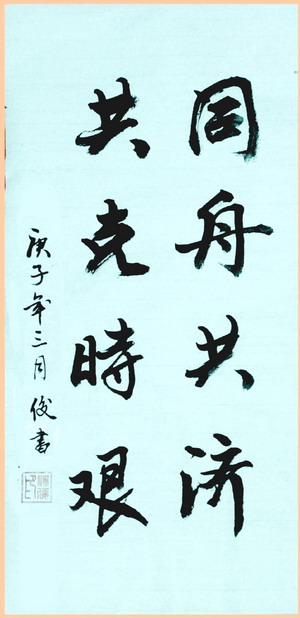 同舟共济
共克時艰
庚子年三月俊書